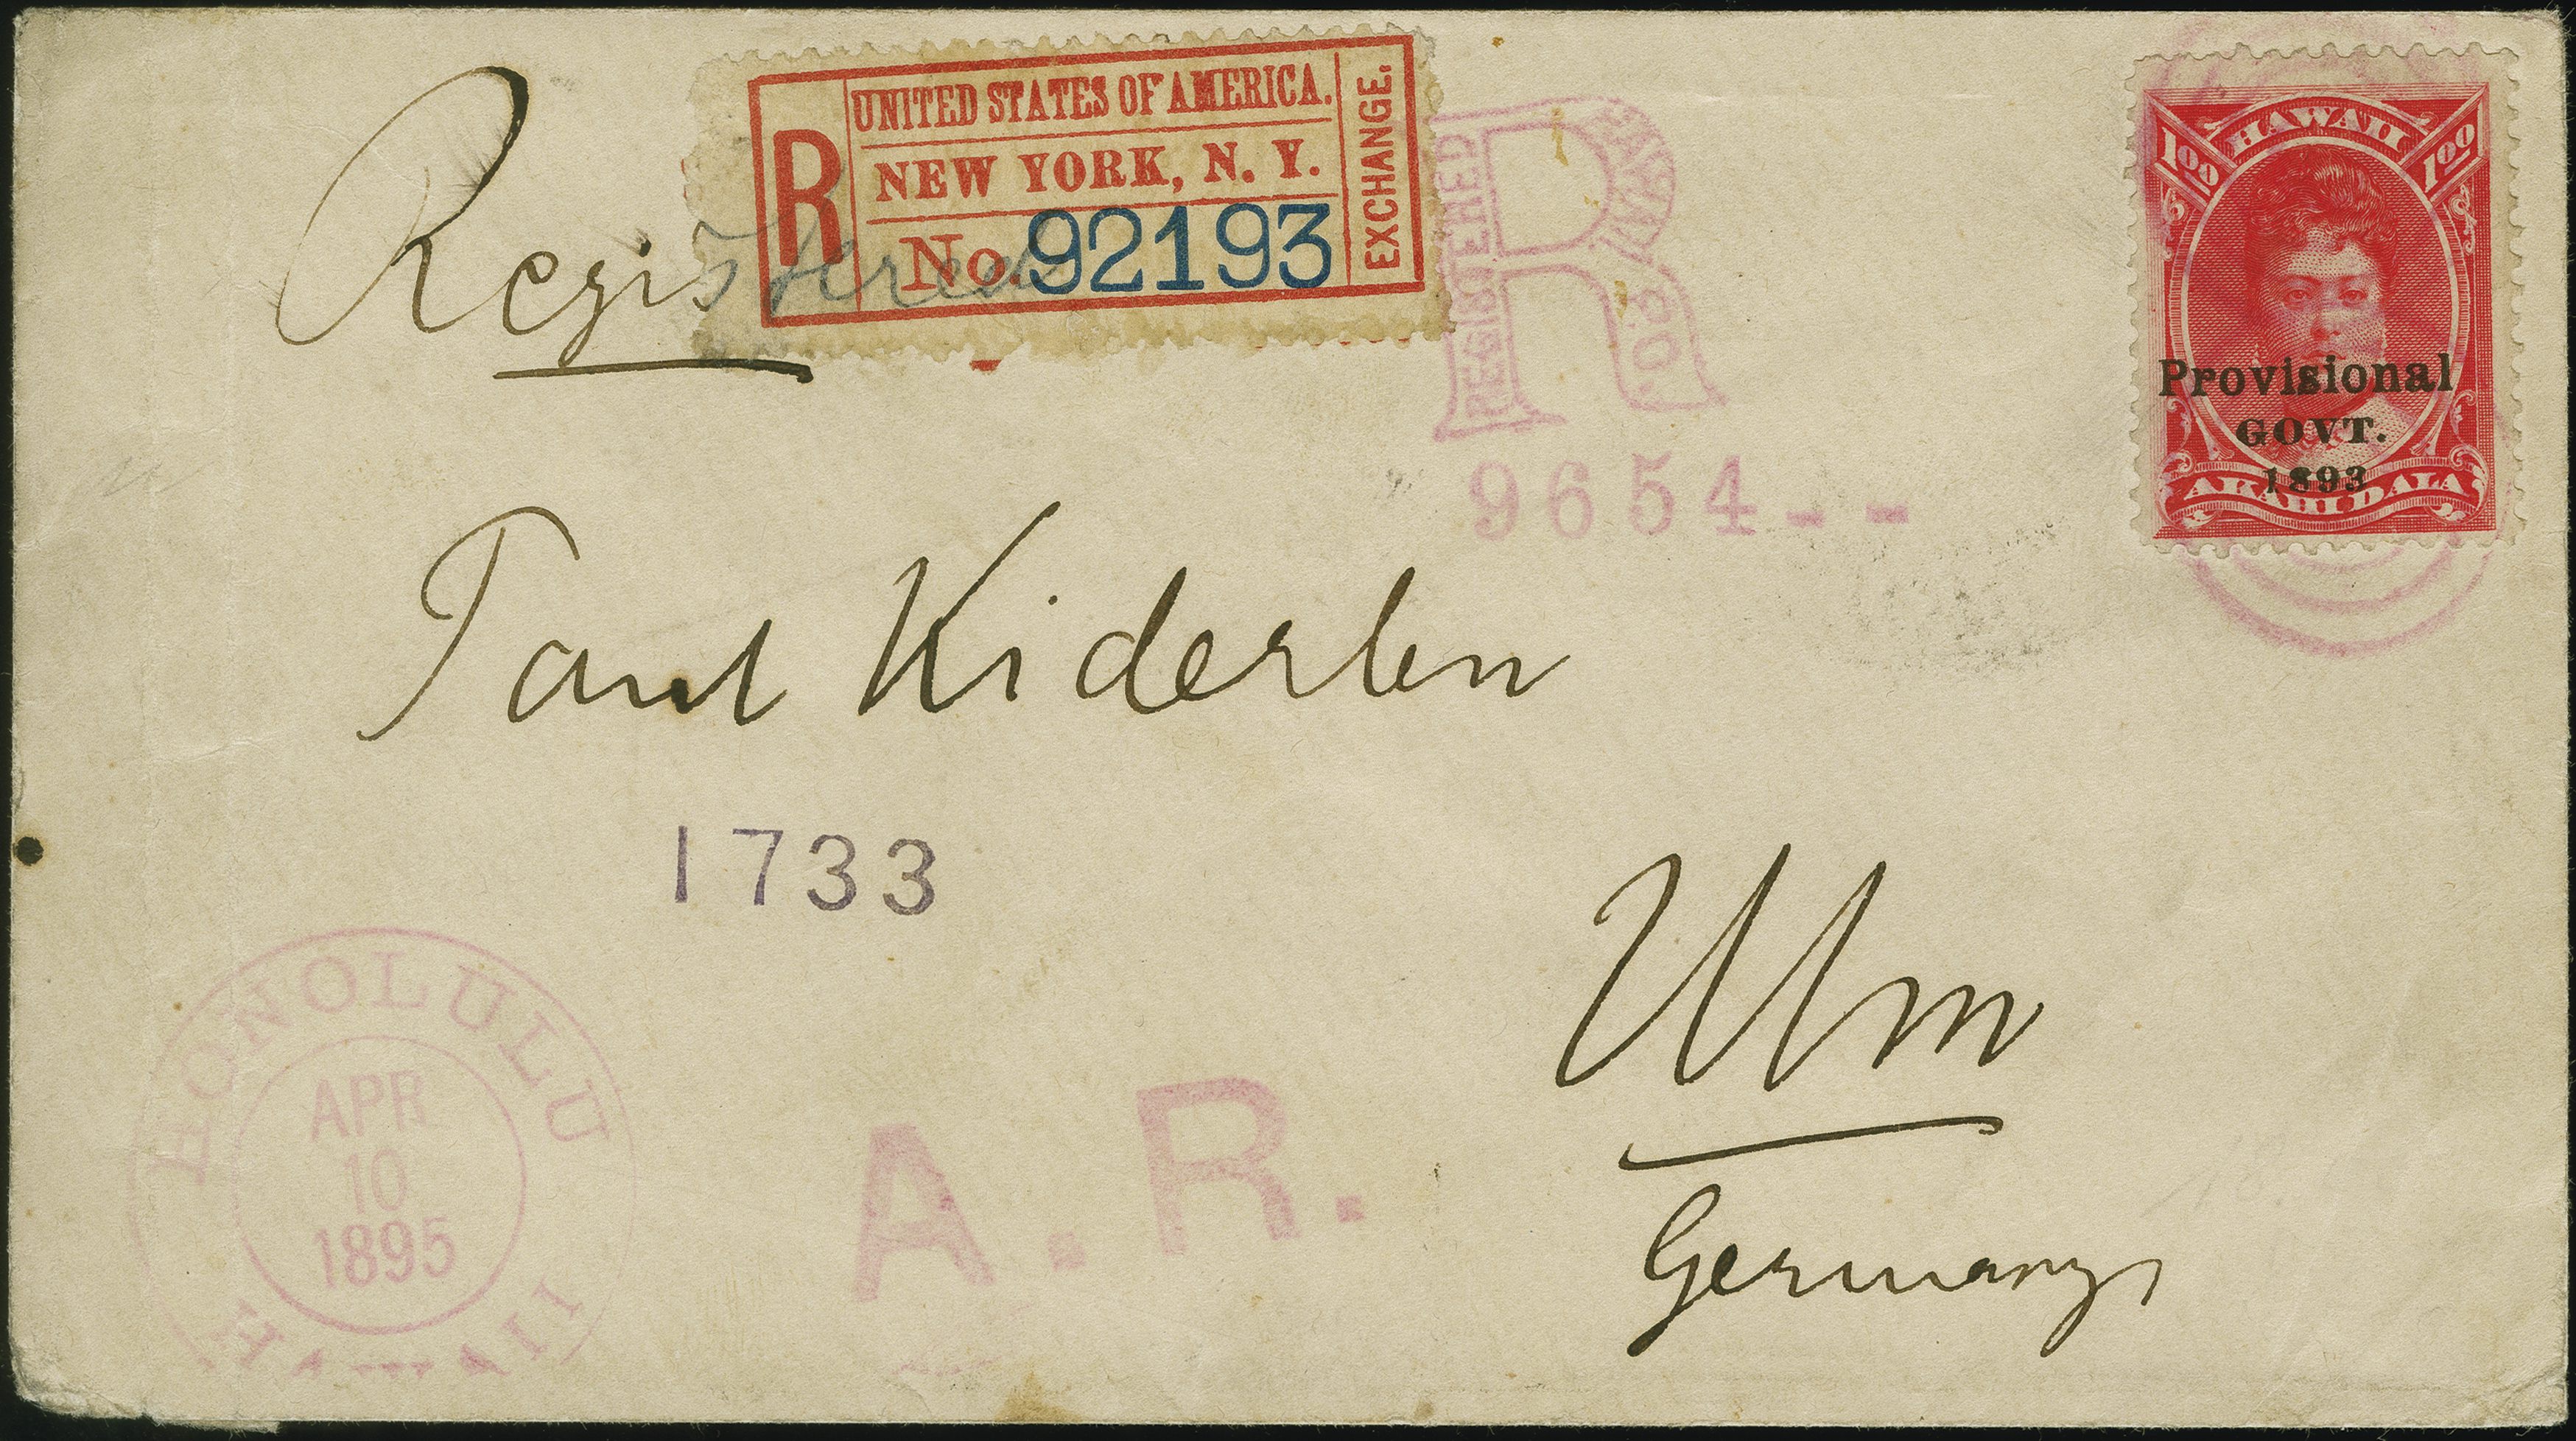 Registered
R
UNITED STATES OF AMERICA.
NEW YORK, N. Y.
No. 92193
EXCHANGE.
REGISTERED
R
HAWAII
P.O.
9654--
HAWAII
1 00
1 00
Provisional
GOVT.
1893
AKAHI DALA
Paul Kiderlen
1733
Ulm
Germany
HONOLULU
APR
10
1895
HAWAII
A. R.